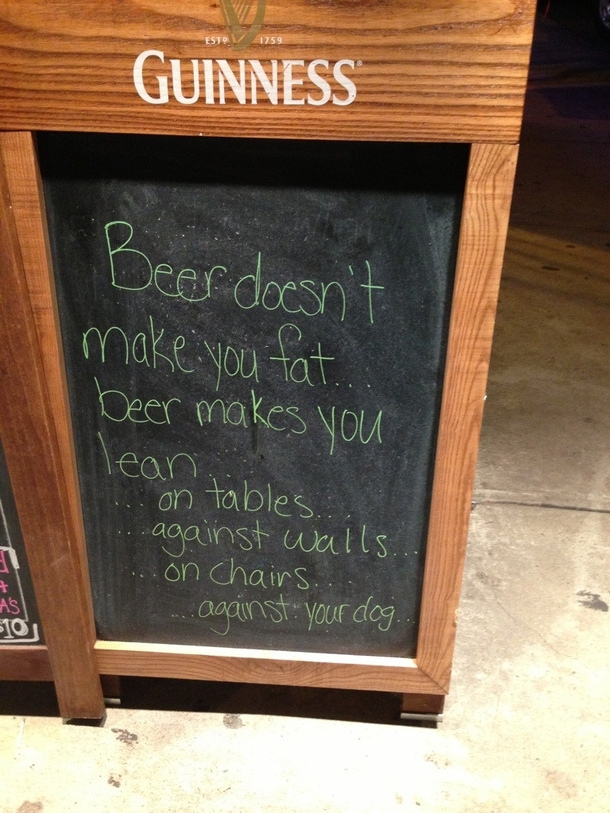 ESTD 1759
GUINNESS®
Beer doesn't
make you fat...
beer makes you
lean
... on tables...
... against walls...
... on chairs...
.... against your dog...
A'S
$10